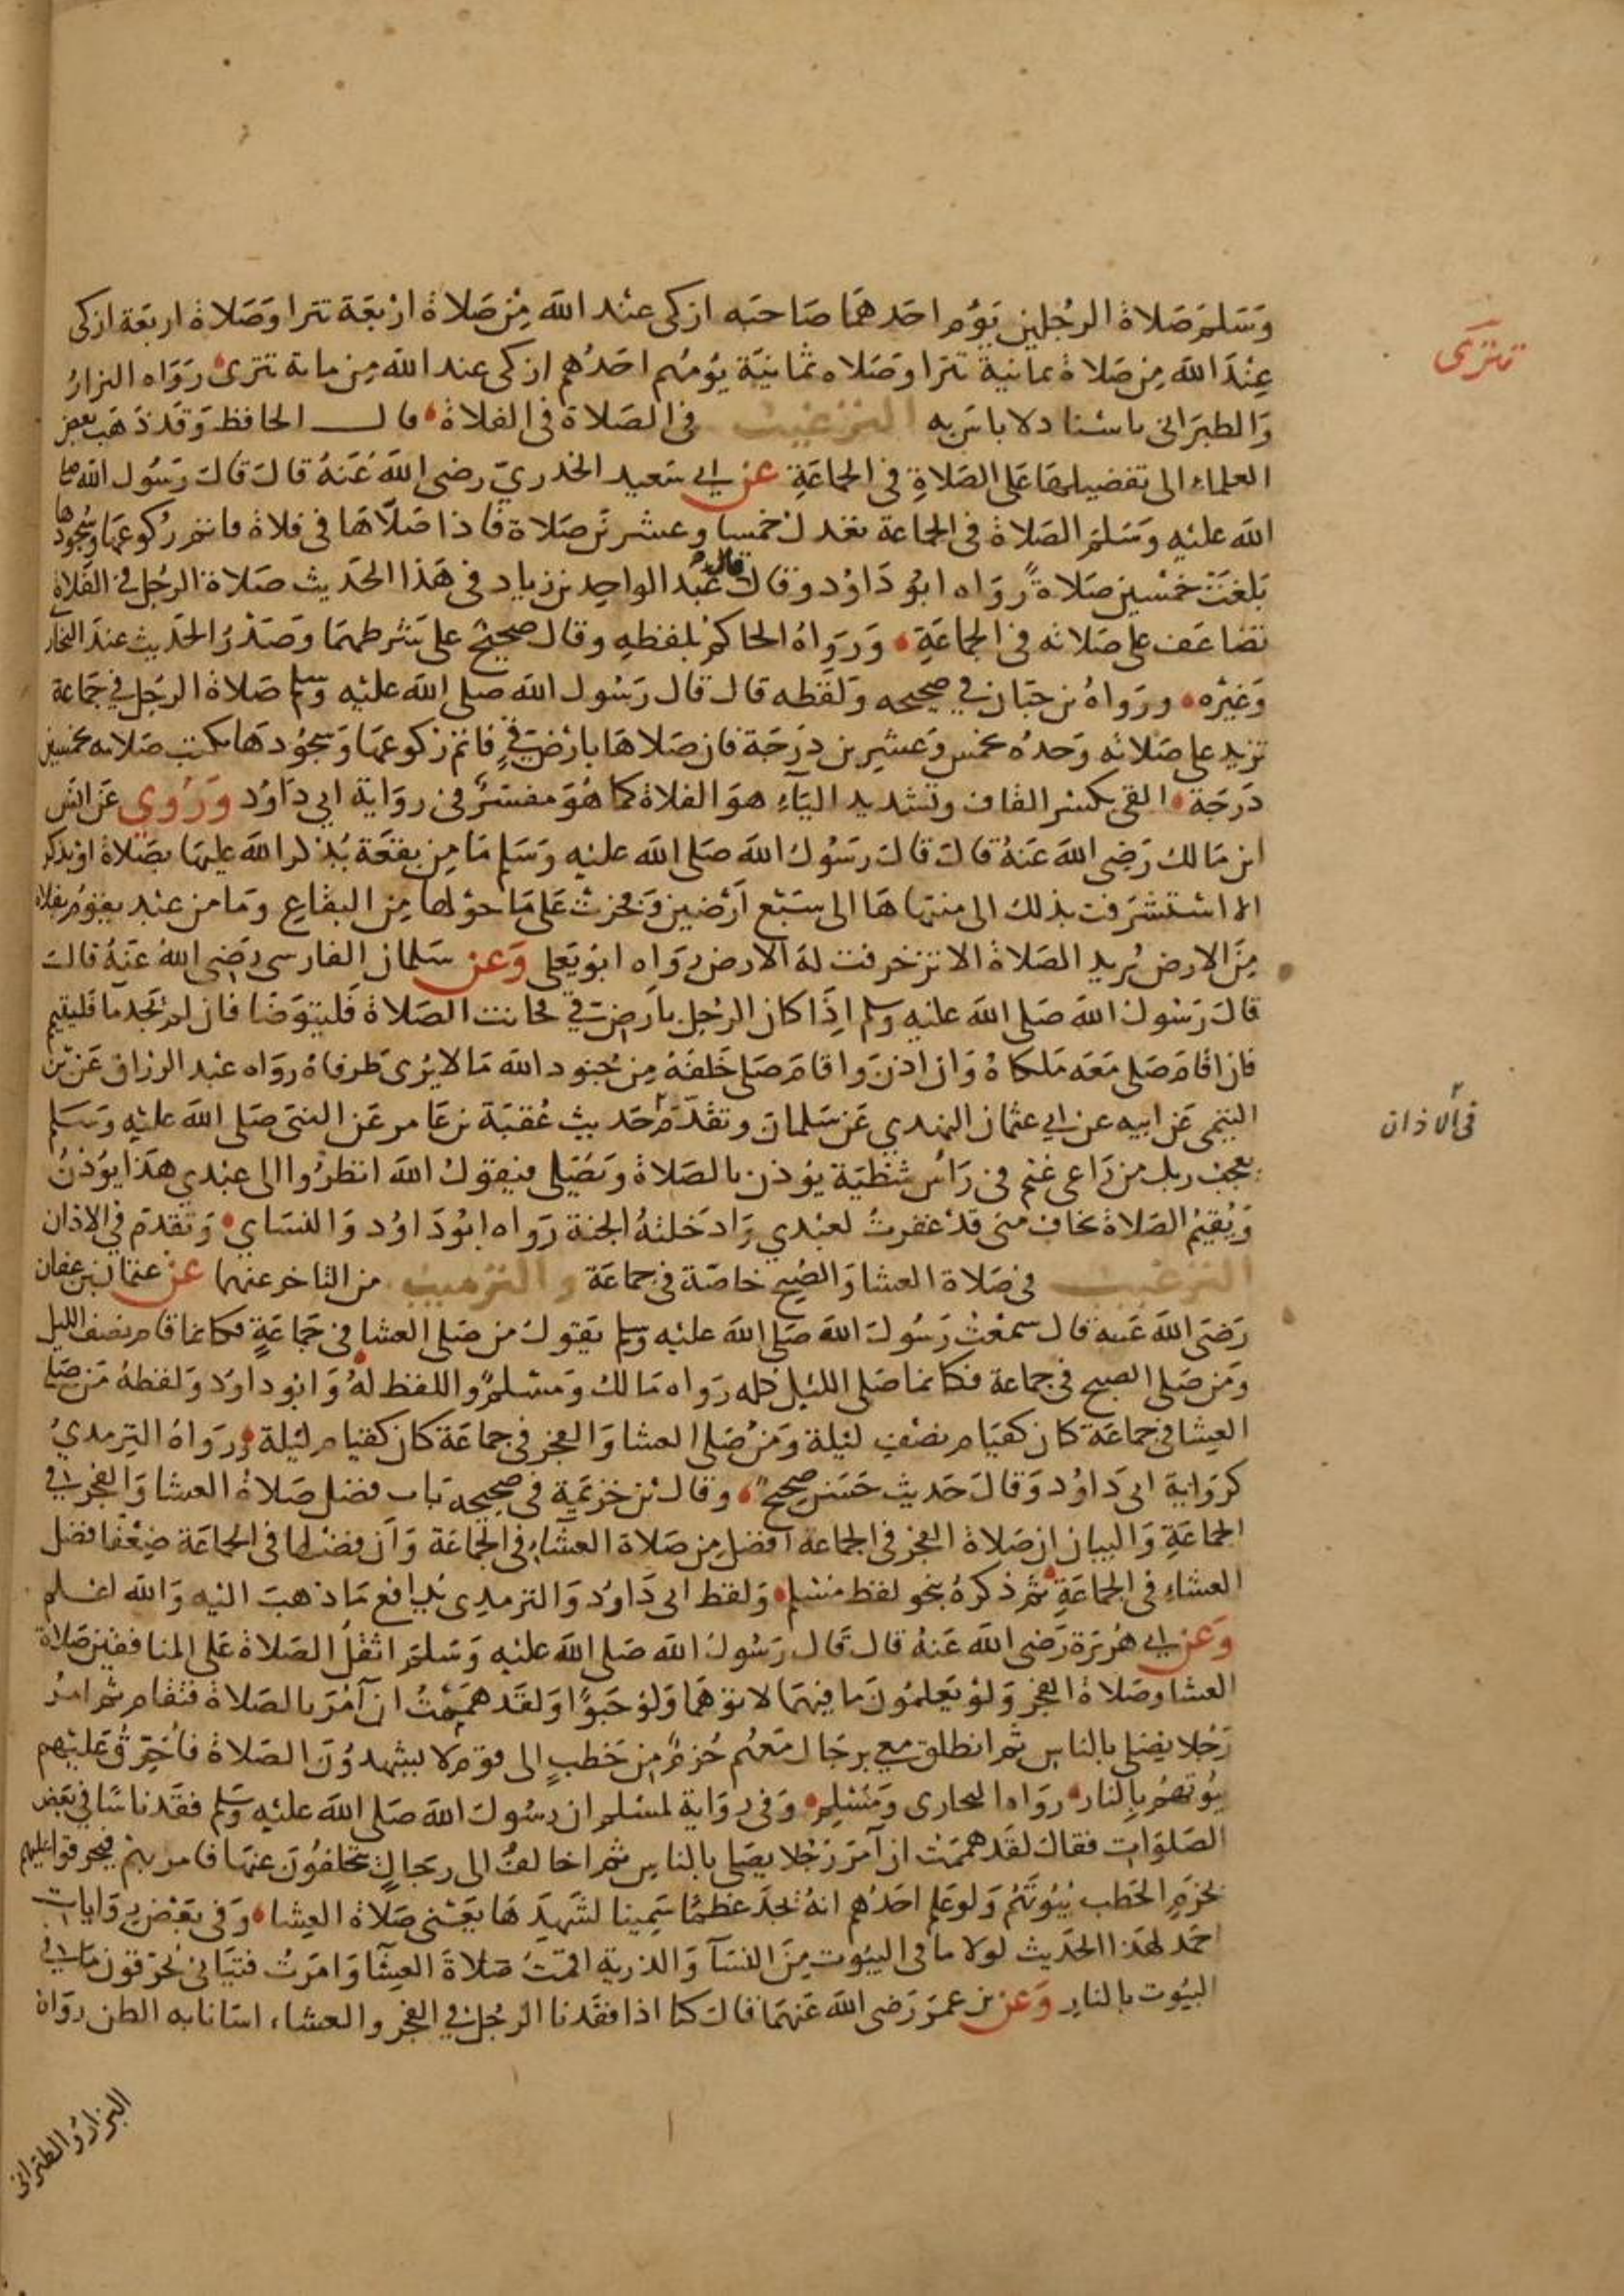 وسلم صلاة الرجلين يؤم احدهما صاحبه ازكى عند الله من صلاة اربعة تترا وصلاة اربعة ازكى
تترى
عند الله من صلاة ثمانية تترا وصلاه ثمانية يؤمهم احدهم ازكى عند الله من ماية تترى رواه البزار
والطبراني باسناد لا باس به الترغيب في الصلاة في الفلاة قال الحافظ وقد ذهب بعض
العلماء الى تفضيلها على الصلاة في الجماعة عن ابي سعيد الخدري رضي الله عنه قال قال رسول الله صلى
الله عليه وسلم الصلاة في الجماعة تعدل خمسا وعشرين صلاة فاذا صلاها في فلاة فاتم ركوعها وسجودها
بلغت خمسين صلاة رواه ابو داود وقال قال عبد الواحد بن زياد في هذا الحديث صلاة الرجل في الفلاة
تضاعف على صلاته في الجماعة ورواه الحاكم بلفظه وقال صحيح على شرطهما وصدر الحديث عند البخار
وغيره ورواه بن حبان في صحيحه ولفظه قال قال رسول الله صلى الله عليه وسلم صلاة الرجل في جماعة
تزيد على صلاته وحده بخمس وعشرين درجة فان صلاها بارض قي فاتم ركوعها وسجودها تكتب صلاته بخمسين
درجة القي بكسر القاف وتشديد الياء هو الفلاة كما هو مفسر في رواية ابي داود وروي عن انس
ابن مالك رضي الله عنه قال قال رسول الله صلى الله عليه وسلم ما من بقعة يذكر الله عليها بصلاة او بذكر
الا استشرفت بذلك الى منتهاها الى سبع ارضين وفخرت على ما حولها من البقاع وما من عبد يقوم بفلاة
من الارض يريد الصلاة الا تزخرفت له الارض رواه ابو يعلى وعن سلمان الفارسي رضي الله عنه قال
قال رسول الله صلى الله عليه وسلم اذا كان الرجل بارض قي فحانت الصلاة فليتوضا فان لم تجد ما فليتيمم
فان اقام صلى معه ملكاه وان اذن واقام صلى خلفه من جنود الله ما لا يرى طرفاه رواه عبد الرزاق عن بن
التيمي عن ابيه عن ابي عثمان النهدي عن سلمان وتقدم حديث عقبة بن عامر عن النبي صلى الله عليه وسلم
في الاذان
يعجب ربك من راعي غنم في راس شظية يؤذن بالصلاة ويصلي فيقول الله انظروا الى عبدي هذا يؤذن
ويقيم الصلاة يخاف مني قد غفرت لعبدي وادخلته الجنة رواه ابو داود والنساي وتقدم في الاذان
الترغيب في صلاة العشا والصبح خاصة في جماعة والترهيب من التاخر عنهما عن عثمان بن عفان
رضي الله عنه قال سمعت رسول الله صلى الله عليه وسلم يقول من صلى العشا في جماعة فكانما قام نصف الليل
ومن صلى الصبح في جماعة فكانما صلى الليل كله رواه مالك ومسلم واللفظ له وابو داود ولفظه من صلى
العشا في جماعة كان كقيام نصف ليلة ومن صلى العشا والفجر في جماعة كان كقيام ليلة ورواه الترمدي
كرواية ابي داود وقال حديث حسن صحيح وقال بن خزيمة في صحيحه باب فضل صلاة العشا والفجر في
الجماعة والبيان ان صلاة الفجر في الجماعة افضل من صلاة العشاء في الجماعة وان فضلها في الجماعة ضعفا فضل
العشاء في الجماعة ثم ذكره بنحو لفظ مسلم ولفظ ابي داود والترمدي يدافع ما ذهب اليه والله اعلم
وعن ابي هريرة رضي الله عنه قال قال رسول الله صلى الله عليه وسلم اثقل الصلاة على المنافقين صلاة
العشا وصلاة الفجر ولو يعلمون ما فيهما لاتوهما ولو حبوا ولقد هممت ان آمر بالصلاة فتقام ثم امر
رجلا يصلي بالناس ثم انطلق معي برجال معهم حزم من حطب الى قوم لا يشهدون الصلاة فاحرق عليهم
بيوتهم بالنار رواه البخاري ومسلم وفي رواية لمسلم ان رسول الله صلى الله عليه وسلم فقد ناسا في بعض
الصلوات فقال لقد هممت ان آمر رجلا يصلي بالناس ثم اخالف الى رجال يتخلفون عنها فامر بهم فيحرقوا عليهم
بحزم الحطب بيوتهم ولو علم احدهم انه يجد عظما سمينا لشهدها يعني صلاة العشا وفي بعض روايات
احمد لهذا الحديث لولا ما في البيوت من النسآ والذرية اقمت صلاة العشا وامرت فتياني يحرقون ما في
البيوت بالنار وعن بن عمر رضي الله عنهما قال كنا اذا فقدنا الرجل في الفجر والعشاء اسانا به الظن رواه
البزار والطبراني